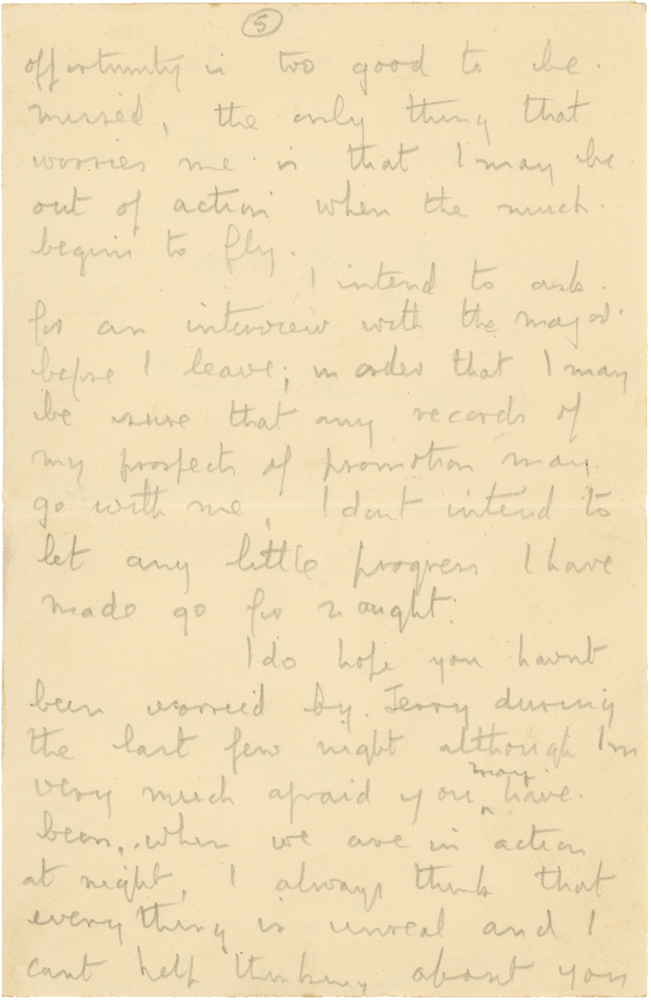 5
opportunity is too good to be.
missed, the only thing that
worries me is that I may be
out of action when the muck.
begins to fly.
I intend to ask.
for an interview with the major
before I leave; in order that I may
be sure that any records of
my prospects of promotion may
go with me, I dont intend to
let any little progress I have
made go for nought.
I do hope you havnt
been worried by. Jerry during
the last few night although Im
very much afraid you may have.
been, when we are in action
at night, I always think that
everything is unreal and I
cant help thinking about you